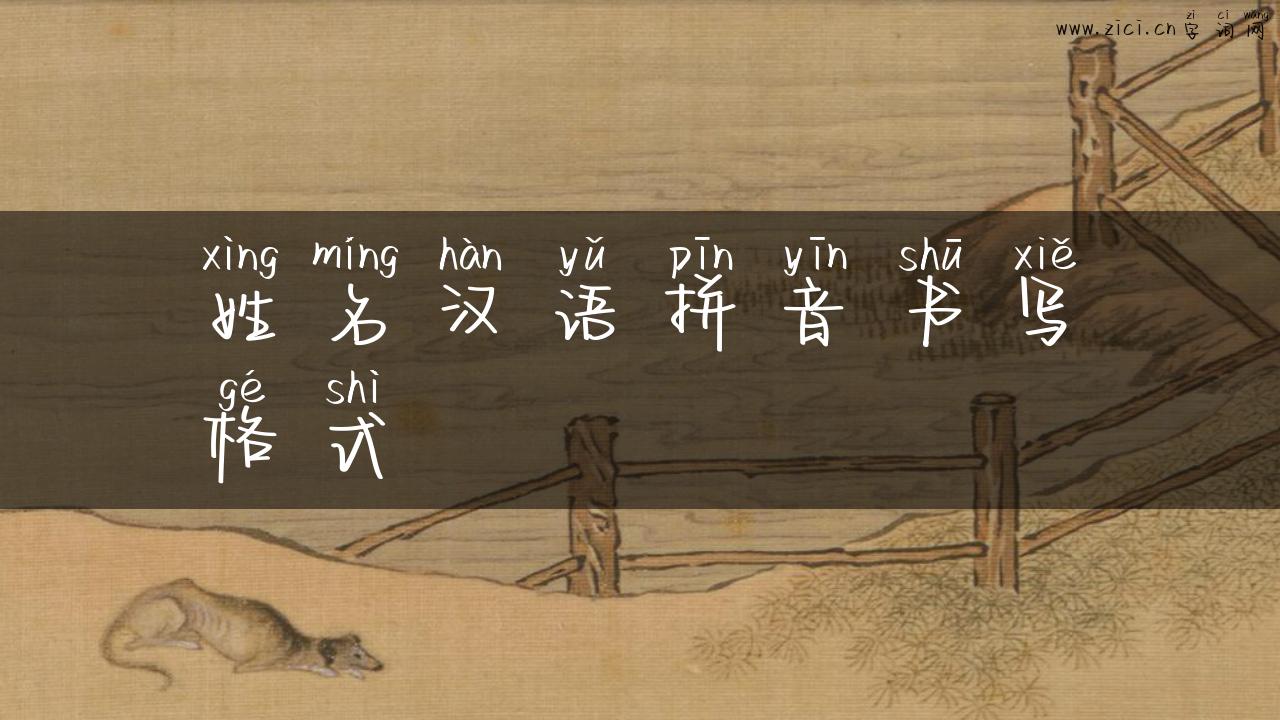 zì cí wǎng
www.zici.cn 字词网
xìng míng hàn yǔ pīn yīn shū xiě
姓名汉语拼音书写
gé shì
格式